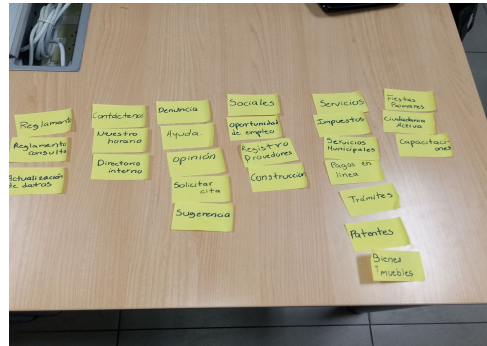 Reglamento
Reglamento
consulta
Actualización
de datos
Contáctenos
Nuestro
horario
Directorio
interno
Denuncia
Ayuda.
Opinión
Solicitar
cita
Sugerencia
Sociales
Oportunidad
de empleo
Registro
Provedores
Construcción
Servicios
Impuestos
Servicios
Municipales
Pagos en
línea
Trámites
Patentes
Bienes
Y
muebles
Fiestas
Palmares
Ciudadanía
Activa
Capacitaci
ones